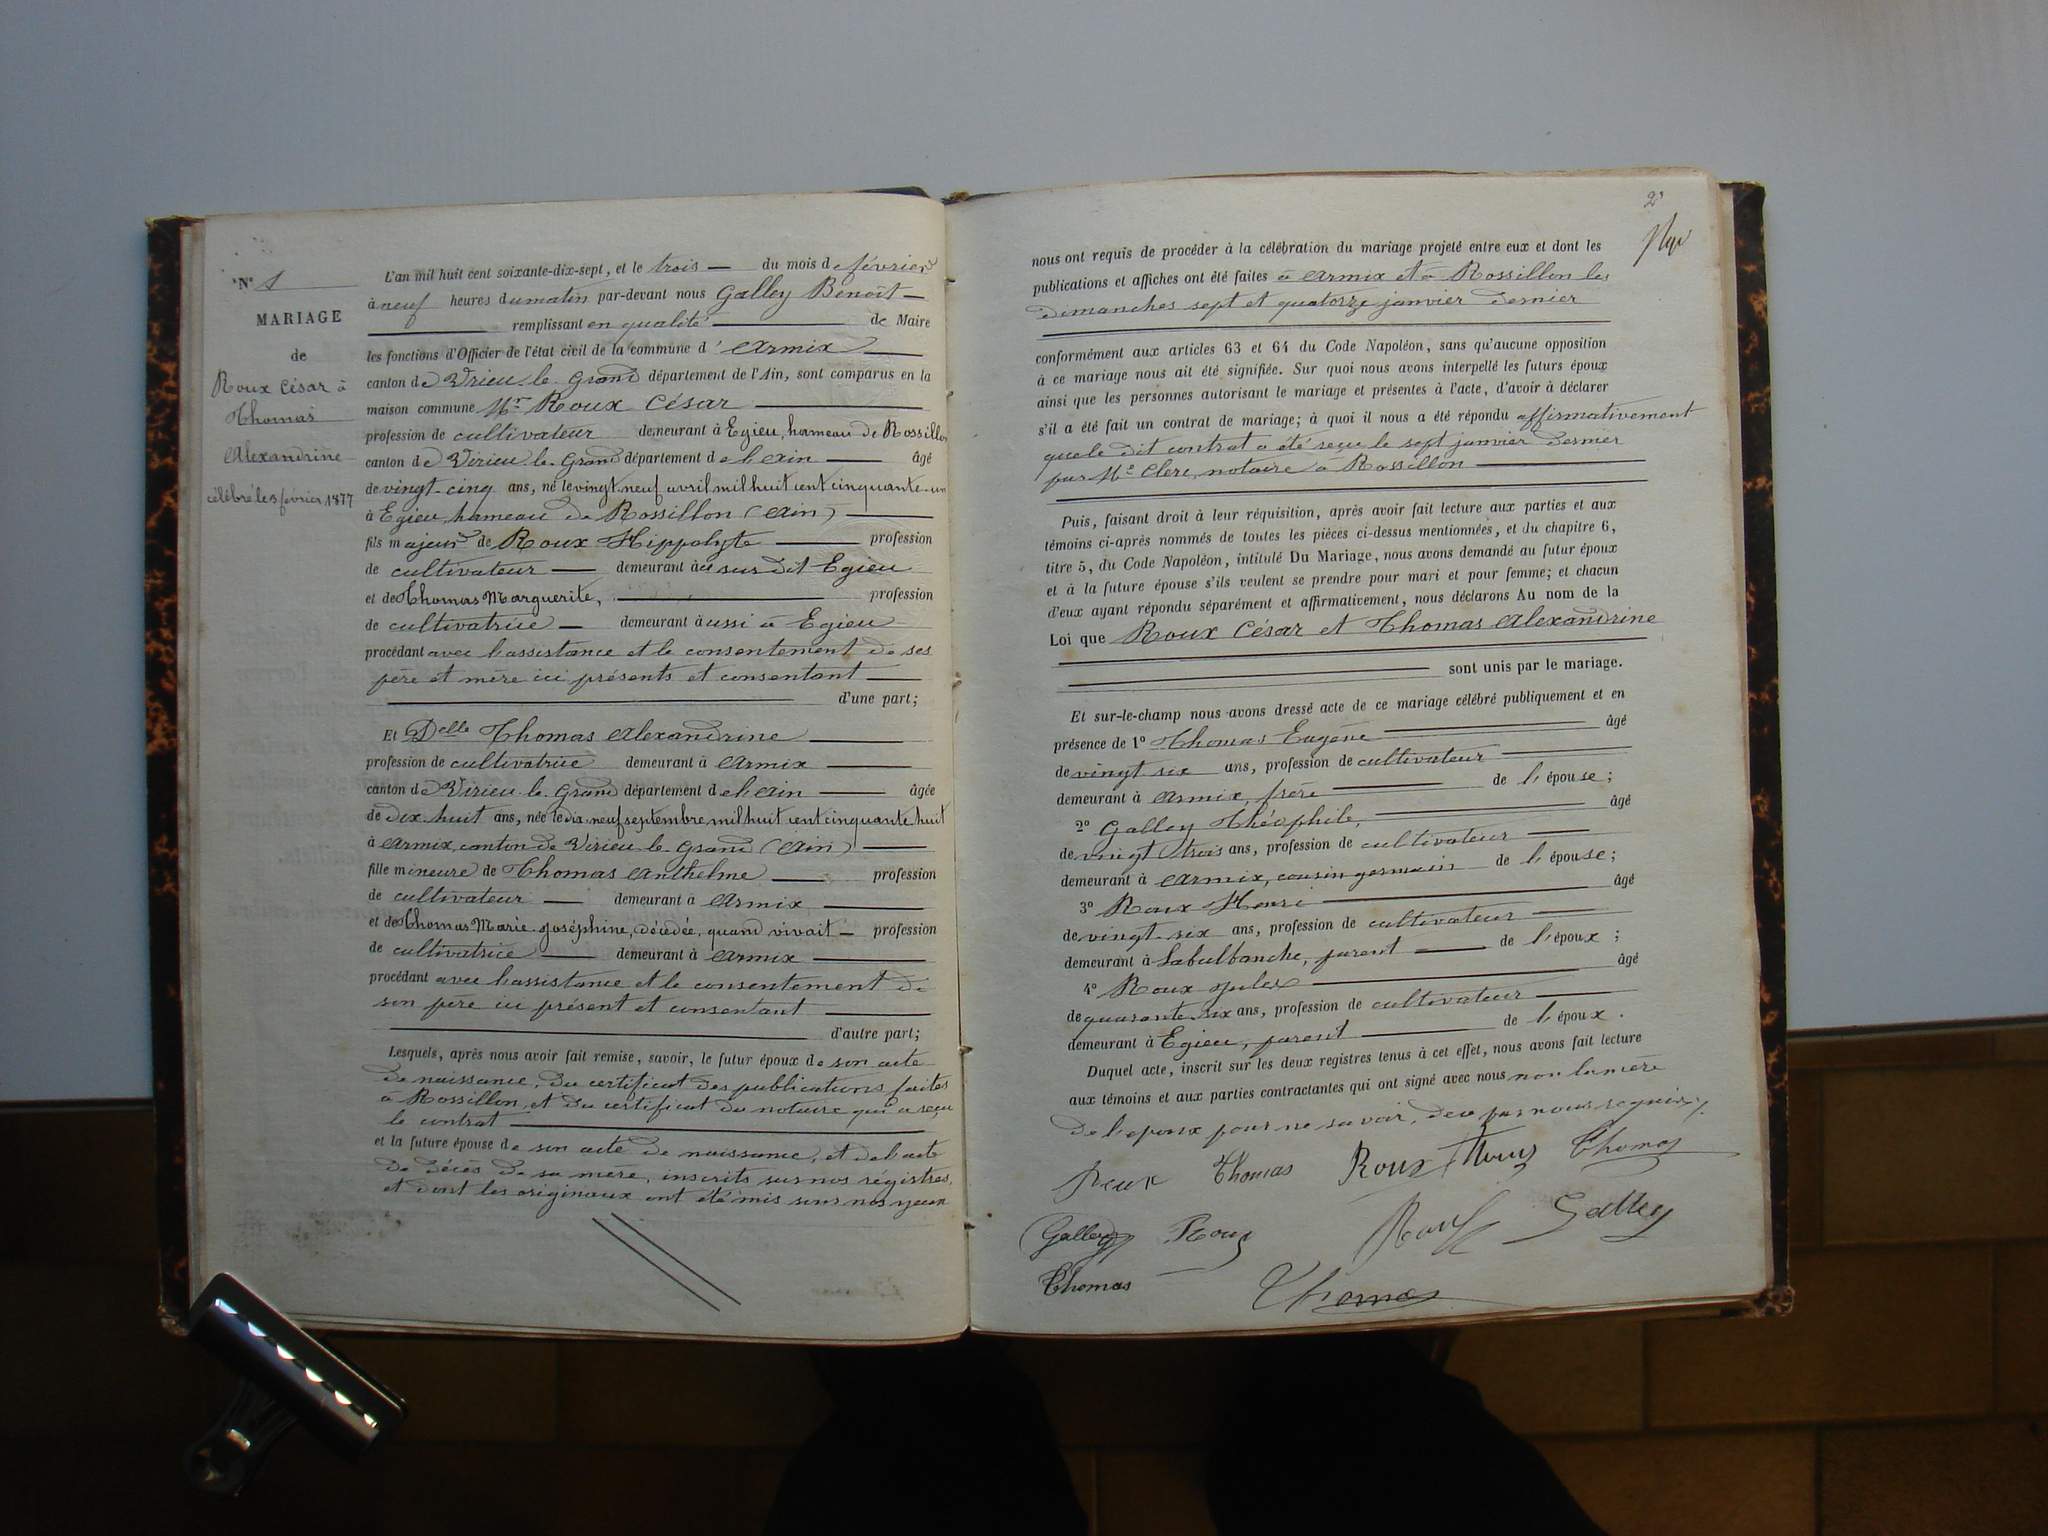 N° 1
MARIAGE
de
Roux César à
Thomas
Alexandrine
célébré le 3 février 1877
L'an mil huit cent soixante-dix-sept, et le trois du mois de février
à neuf heures du matin par-devant nous Galley Benoît
remplissant en qualité de Maire
les fonctions d'Officier de l'état civil de la commune d'Armix
canton de Virieu le Grand département de l'Ain, sont comparus en la
maison commune Mr Roux César
profession de cultivateur demeurant à Egieu, hameau de Rossillon
canton de Virieu le Grand département de l'Ain âgé
de vingt-cinq ans, né le vingt neuf avril mil huit cent cinquante-un
à Egieu hameau de Rossillon (Ain)
fils majeur de Roux Hippolyte profession
de cultivateur demeurant au susdit Egieu
et de Thomas Marguerite, profession
de cultivatrice demeurant aussi à Egieu
procédant avec l'assistance et le consentement de ses
père et mère ici présents et consentant
d'une part;
Et Delle Thomas Alexandrine
profession de cultivatrice demeurant à Armix
canton de Virieu le Grand département de l'Ain âgée
de dix huit ans, née le dix neuf septembre mil huit cent cinquante huit
à Armix, canton de Virieu le Grand (Ain)
fille mineure de Thomas Anthelme profession
de cultivateur demeurant à Armix
et de Thomas Marie Joséphine, décédée, quand vivait profession
de cultivatrice demeurant à Armix
procédant avec l'assistance et le consentement de
son père ici présent et consentant
d'autre part;
Lesquels, après nous avoir fait remise, savoir, le futur époux de son acte
de naissance, du certificat des publications faites
à Rossillon, et du certificat du notaire qui a reçu
le contrat
et la future épouse de son acte de naissance, et de l'acte
de décès de sa mère, inscrits sur nos régistres,
et dont les originaux ont été mis sous nos yeux
2
nous ont requis de procéder à la célébration du mariage projeté entre eux et dont les
publications et affiches ont été faites à Armix et à Rossillon les
dimanches sept et quatorze janvier dernier
conformément aux articles 63 et 64 du Code Napoléon, sans qu'aucune opposition
à ce mariage nous ait été signifiée. Sur quoi nous avons interpellé les futurs époux
ainsi que les personnes autorisant le mariage et présentes à l'acte, d'avoir à déclarer
s'il a été fait un contrat de mariage; à quoi il nous a été répondu affirmativement
que le dit contrat a été reçu le sept janvier dernier
par Me Clerc, notaire à Rossillon
Puis, faisant droit à leur réquisition, après avoir fait lecture aux parties et aux
témoins ci-après nommés de toutes les pièces ci-dessus mentionnées, et du chapitre 6,
titre 5, du Code Napoléon, intitulé Du Mariage, nous avons demandé au futur époux
et à la future épouse s'ils veulent se prendre pour mari et pour femme; et chacun
d'eux ayant répondu séparément et affirmativement, nous déclarons Au nom de la
Loi que Roux César et Thomas Alexandrine
sont unis par le mariage.
Et sur-le-champ nous avons dressé acte de ce mariage célébré publiquement et en
présence de 1° Thomas Eugène âgé
de vingt six ans, profession de cultivateur
demeurant à Armix, frère de l'épouse;
2° Galley Théophile, âgé
de vingt trois ans, profession de cultivateur
demeurant à Armix, cousin germain de l'épouse;
3° Roux Henri âgé
de vingt-six ans, profession de cultivateur
demeurant à Labalbanche, parent de l'époux;
4° Roux Jules âgé
de quarante-six ans, profession de cultivateur
demeurant à Egieu, parent de l'époux.
Duquel acte, inscrit sur les deux registres tenus à cet effet, nous avons fait lecture
aux témoins et aux parties contractantes qui ont signé avec nous non la mère
de l'époux pour ne savoir, de ce par nous requis.
Roux Thomas Roux Thomas
Galley Roux Roux Galley
Thomas Thomas